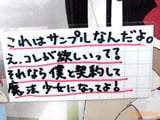 これはサンプルなんだよ。
え、コレが欲しいって?
それなら僕と契約して
魔法少女になってよ!